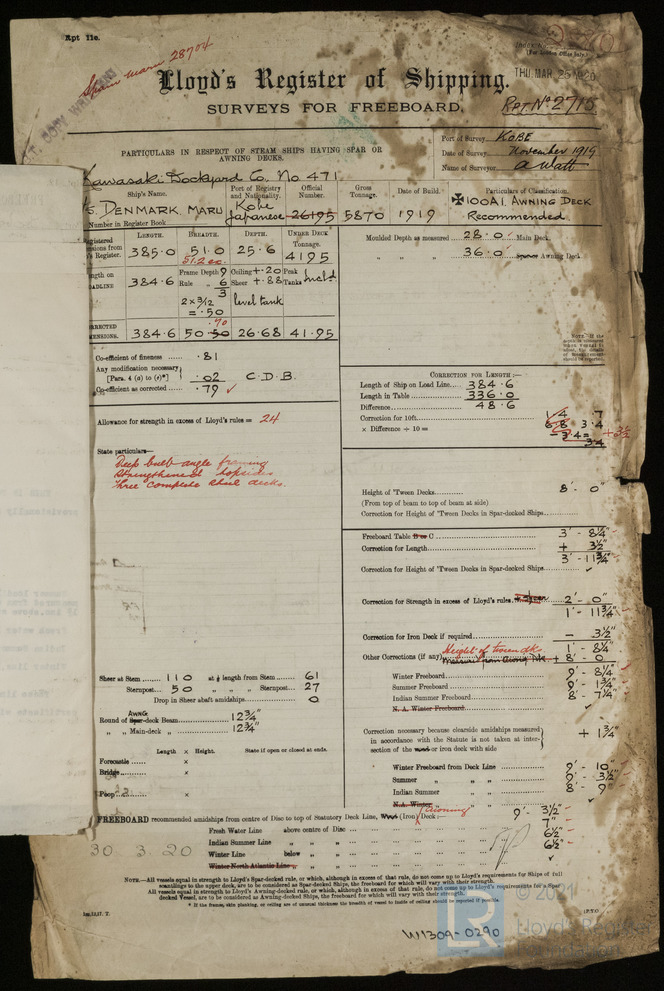 Rpt 11e.
Spam Maru 28704
(For London Office only.)
THU. MAR. 25 1920
Lloyd's Register of Shipping.
SURVEYS FOR FREEBOARD.
RPT No 2715
PARTICULARS IN RESPECT OF STEAM SHIPS HAVING SPAR OR
AWNING DECKS.
Port of Survey KOBE
Date of Survey November 1919
Name of Surveyor A Watt
Kawasaki Dockyard Co. No 471
Ship's Name.
Port of Registry and Nationality.
Official Number.
Gross Tonnage.
Date of Build.
Particulars of Classification.
DENMARK MARU
Kobe
Japanese
26195
5870
1919
✠100A1. AWNING DECK
Recommended.
Number in Register Book
LENGTH. BREADTH. DEPTH. UNDER DECK TONNAGE.
385.0 51.0 25.6 4195
51.2 ec.
384.6
Frame Depth 9
Rule " 6
3
2 x 3/12
= .50
Ceiling + .20
Sheer + .88
level tank
Peak Tanks Incl'd
.70
384.6 50.50 26.68 41.95
Moulded Depth as measured 28.0 Main Deck
" " " 36.0 Spar Awning Deck
Co-efficient of fineness .81
Any modification necessary
[Para. 4 (a) to (e)*] .02 C.D.B.
Co-efficient as corrected .79 ✓
Allowance for strength in excess of Lloyd's rules = 24
State particulars—
Deep bulb angle framing
Strengthened topsides
Three complete steel decks.
CORRECTION FOR LENGTH:—
Length of Ship on Load Line 384.6
Length in Table 336.0
Difference 48.6
Correction for 10ft. .7
× Difference ÷ 10 = 3.4
+3½
Height of 'Tween Decks 8' - 0"
(From top of beam to top of beam at side)
Correction for Height of 'Tween Decks in Spar-decked Ships
Freeboard Table C 3' - 8¼"
Correction for Length + 3½"
3' - 11¾"
Correction for Height of 'Tween Decks in Spar-decked Ships ✓
Correction for Strength in excess of Lloyd's rules 2' - 0"
1' - 11¾"
Correction for Iron Deck if required - 3½"
1' - 8¼"
Height of tween dk
Other Corrections (if any) + 8' - 0
Winter Freeboard 9' - 8¼"
Summer Freeboard 9' - 1¾"
Indian Summer Freeboard 8' - 7¼"
N. A. Winter Freeboard ✓
Sheer at Stem 110 at ⅛ length from Stem 61
Sternpost 50 " " " Sternpost 27
Drop in Sheer abaft amidships 0
AWNG
Round of Spar-deck Beam 12¾"
" " Main-deck " 12¾"
Length × Height. State if open or closed at ends.
Forecastle ×
Bridge ×
Poop ×
Correction necessary because clearside amidships measured
in accordance with the Statute is not taken at inter-
section of the wood or iron deck with side + 1¾"
Winter Freeboard from Deck Line 9' - 10"
Summer " " " 9' - 3½"
Indian Summer " 8' - 9"
N.A. Winter " ✓
Awning
FREEBOARD recommended amidships from centre of Disc to top of Statutory Deck Line, Wood (Iron) Deck:— 9' - 3½"
Fresh Water Line above centre of Disc 7"
Indian Summer Line " " 6½"
Winter Line below " 6½"
Winter North Atlantic Line " ✓
30 3.20
NOTE.—All vessels equal in strength to Lloyd's Spar-decked rule, or which, although in excess of that rule, do not come up to Lloyd's requirements for Ships of full
scantlings to the upper deck, are to be considered as Spar-decked Ships, the freeboard for which will vary with their strength.
All vessels equal in strength to Lloyd's Awning-decked rule, or which, although in excess of that rule, do not come up to Lloyd's requirements for a Spar
decked Vessel, are to be considered as Awning-decked Ships, the freeboard for which will vary with their strength.
* If the frames, skin planking, or ceiling are of unusual thickness the breadth of vessel to inside of ceiling should be reported if possible.
W1309-0290
LR
© 2021
Lloyd's Register